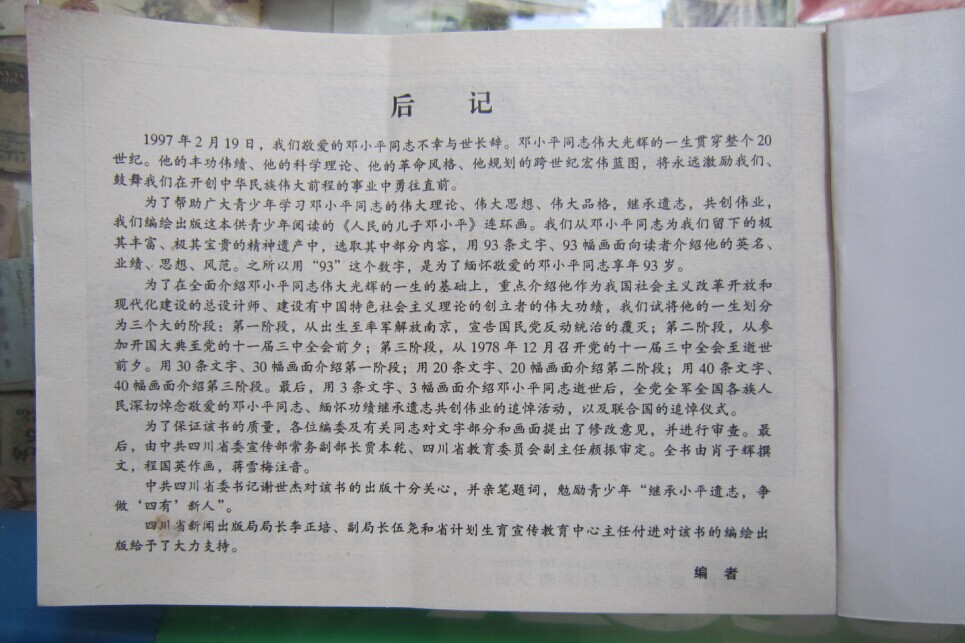 后 记
1997年2月19日，我们敬爱的邓小平同志不幸与世长辞。邓小平同志伟大光辉的一生贯穿整个20
世纪。他的丰功伟绩、他的科学理论、他的革命风格、他规划的跨世纪宏伟蓝图，将永远激励我们、
鼓舞我们在开创中华民族伟大前程的事业中勇往直前。
为了帮助广大青少年学习邓小平同志的伟大理论、伟大思想、伟大品格，继承遗志，共创伟业，
我们编绘出版这本供青少年阅读的《人民的儿子邓小平》连环画。我们从邓小平同志为我们留下的极
其丰富、极其宝贵的精神遗产中，选取其中部分内容，用93条文字、93幅画面向读者介绍他的英名、
业绩、思想、风范。之所以用“93”这个数字，是为了缅怀敬爱的邓小平同志享年93岁。
为了在全面介绍邓小平同志伟大光辉的一生的基础上，重点介绍他作为我国社会主义改革开放和
现代化建设的总设计师、建设有中国特色社会主义理论的创立者的伟大功绩，我们试将他的一生划分
为三个大的阶段：第一阶段，从出生至率军解放南京，宣告国民党反动统治的覆灭；第二阶段，从参
加开国大典至党的十一届三中全会前夕；第三阶段，从1978年12月召开党的十一届三中全会至逝世
前夕。用30条文字、30幅画面介绍第一阶段；用20条文字、20幅画面介绍第二阶段；用40条文字、
40幅画面介绍第三阶段。最后，用3条文字、3幅画面介绍邓小平同志逝世后，全党全军全国各族人
民深切悼念敬爱的邓小平同志、缅怀功绩继承遗志共创伟业的追悼活动，以及联合国的追悼仪式。
为了保证该书的质量，各位编委及有关同志对文字部分和画面提出了修改意见，并进行审查。最
后，由中共四川省委宣传部常务副部长贾本乾、四川省教育委员会副主任颜振审定。全书由肖子辉撰
文，程国英作画，蒋雪梅注音。
中共四川省委书记谢世杰对该书的出版十分关心，并亲笔题词，勉励青少年“继承小平遗志，争
做‘四有’新人”。
四川省新闻出版局局长李正培、副局长伍尧和省计划生育宣传教育中心主任付进对该书的编绘出
版给予了大力支持。
编 者